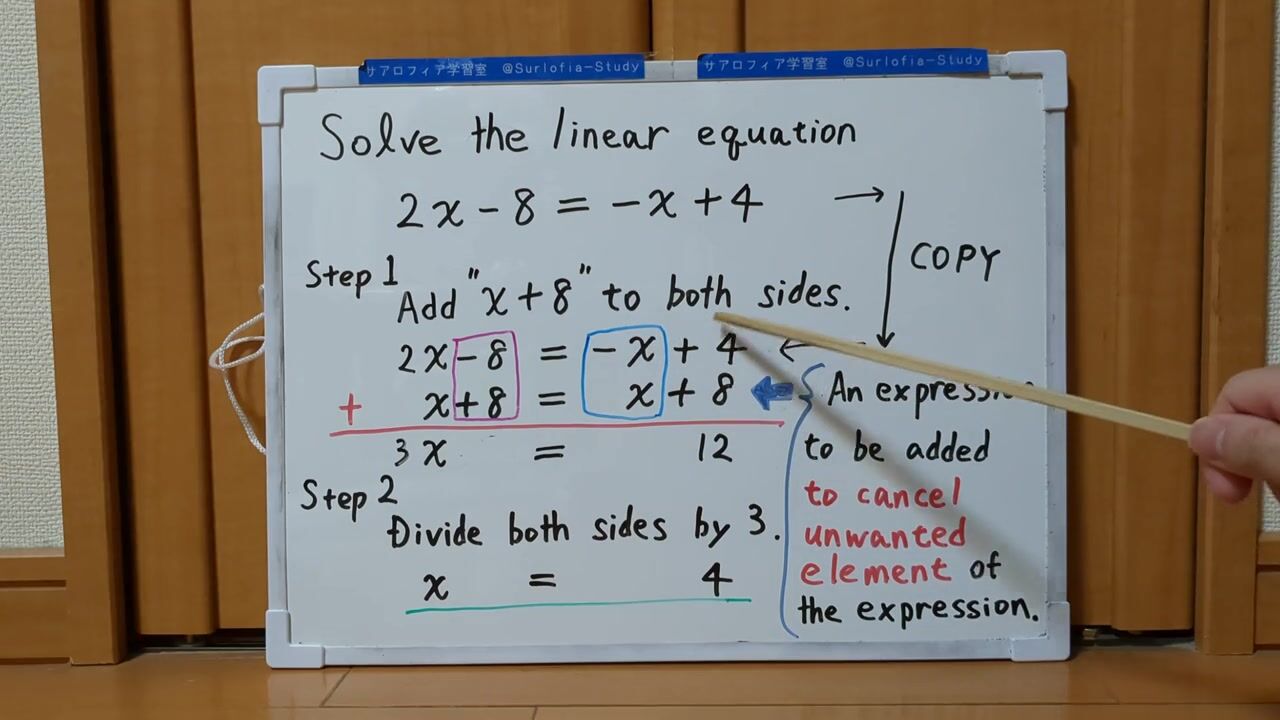 サアロフィア学習室 @Surlofia-Study
サアロフィア学習室 @Surlofia-Study
Solve the linear equation
2x-8=-x+4
COPY
Step 1
Add "x+8" to both sides.
2x-8 = -x+4
+ x+8 = x+8
3x = 12
Step 2
Divide both sides by 3.
x = 4
An
to be added
to cancel
unwanted
element of
the expression.